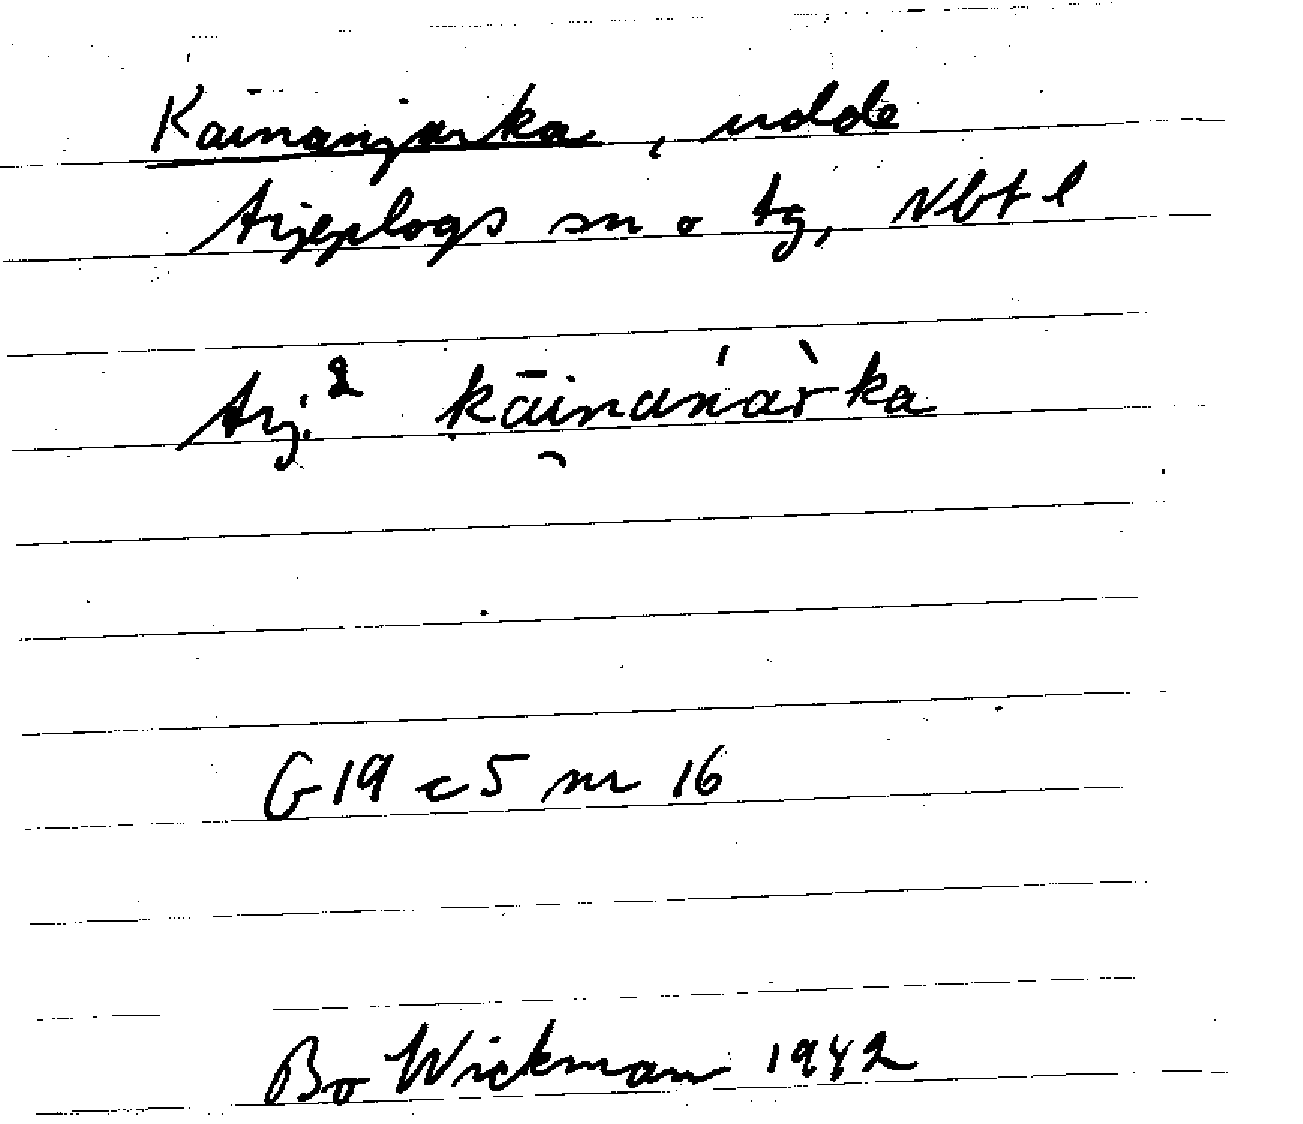 Kainanjarka, udde
Arjeplogs sn o tg, Vbt l
Arj.² kāinańàr̀ka
G19 c5 nr 16
Bo Wickman 1942